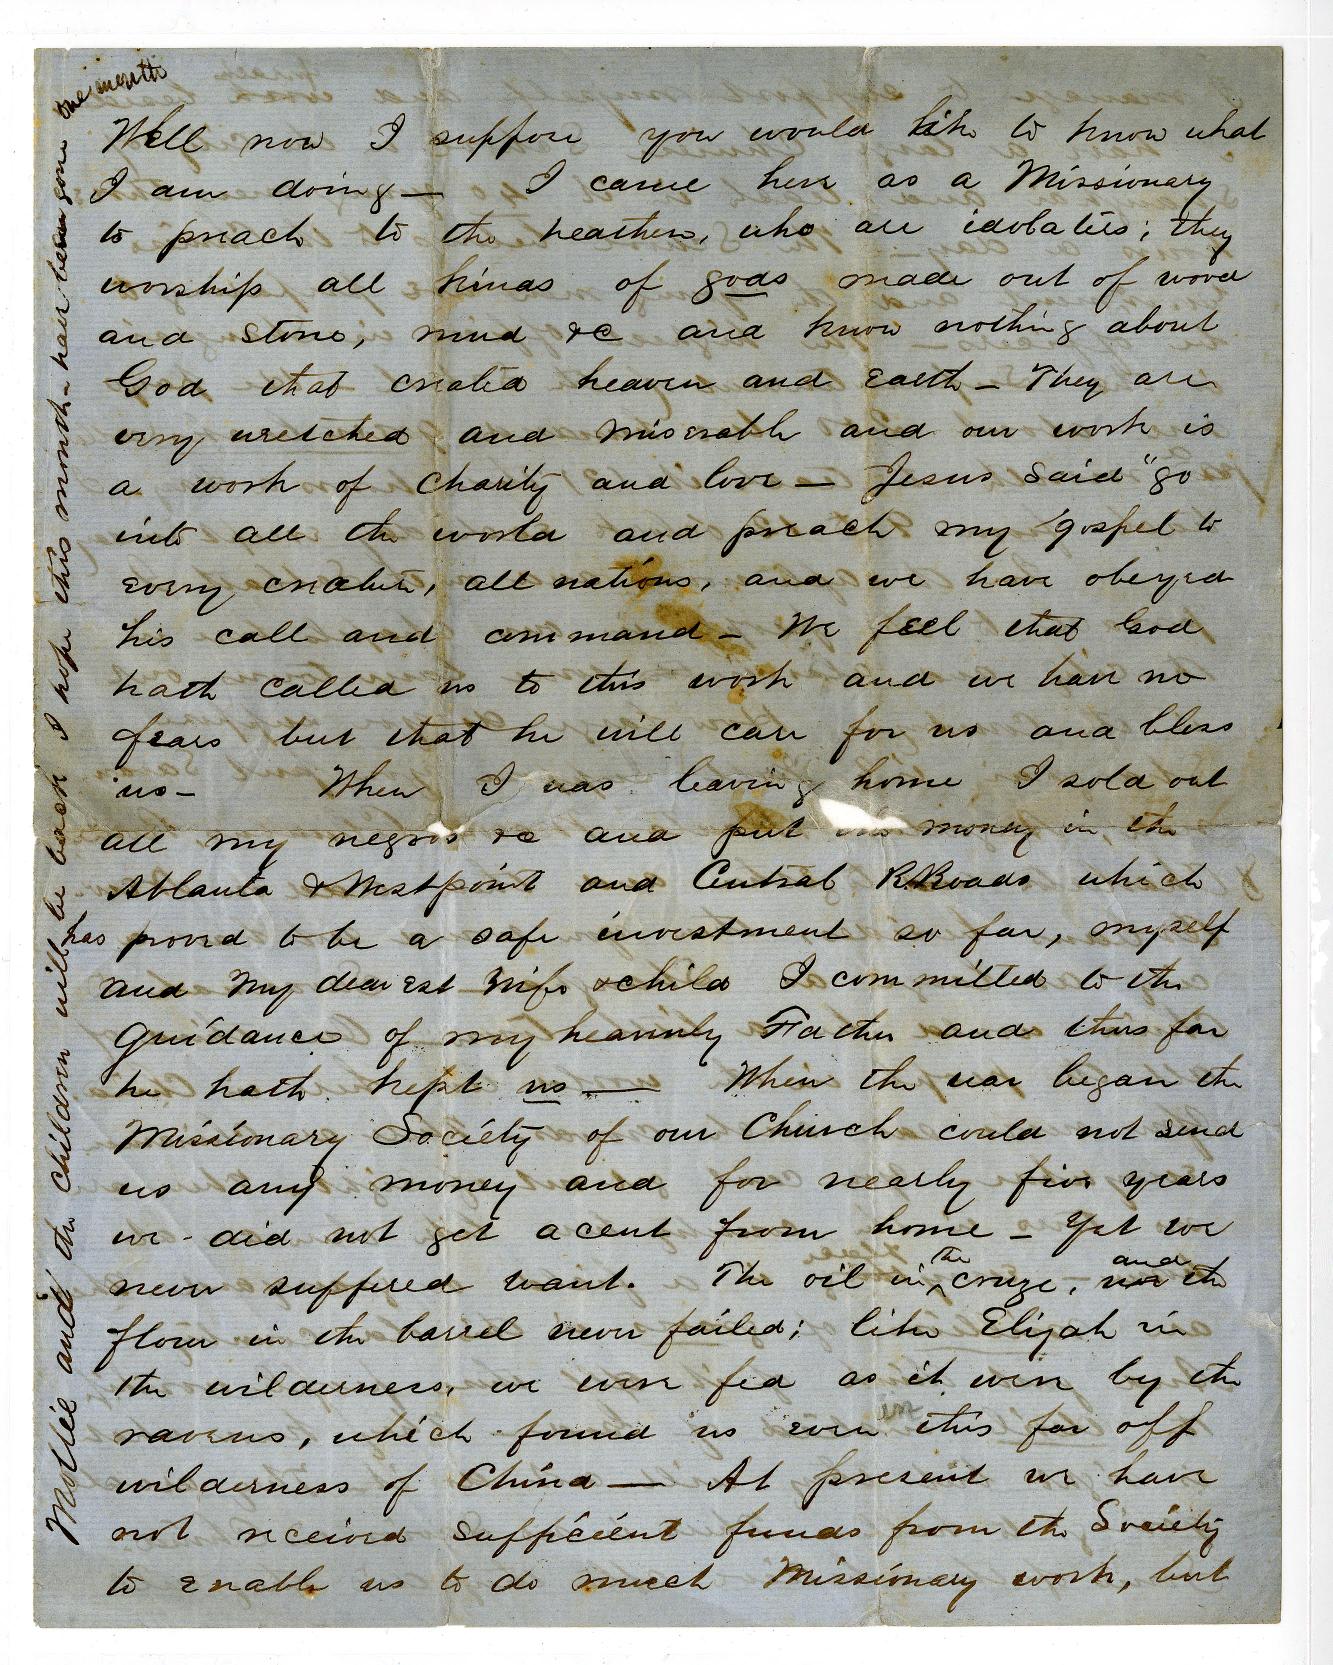 Well now I suppose you would like to know what
I am doing — I came here as a Missionary
to preach to the heathen, who are idolaters; they
worship all kinds of gods made out of wood
and stone, mud &c and know nothing about
God that created heaven and Earth — They are
very wretched and miserable and our work is
a work of charity and love — Jesus said "go
into all the world and preach my gospel to
every creature, all nations, and we have obeyed
his call and command — We feel that God
hath called us to this work and we have no
fears but that he will care for us and bless
us — When I was leaving home I sold out
all my negros &c and put the money in the
Atlanta & Westpoint and Central RRoads which
has proved to be a safe investment so far, myself
and my dearest Wife & child I committed to the
Guidance of my heavenly Father and thus far
he hath kept us — When the war began the
Missionary Society of our Church could not send
us any money and for nearly five years
we did not get a cent from home — Yet we
never suffered want. The oil in the cruze, and the
flour in the barrel never failed; like Elijah in
the wilderness, we were fed as it were by the
ravens, which found us even in this far off
wilderness of China — At present we have
not received sufficient funds from the Society
to enable us to do much Missionary work, but
Mollie and the children will be back I hope this month — have been gone
one month